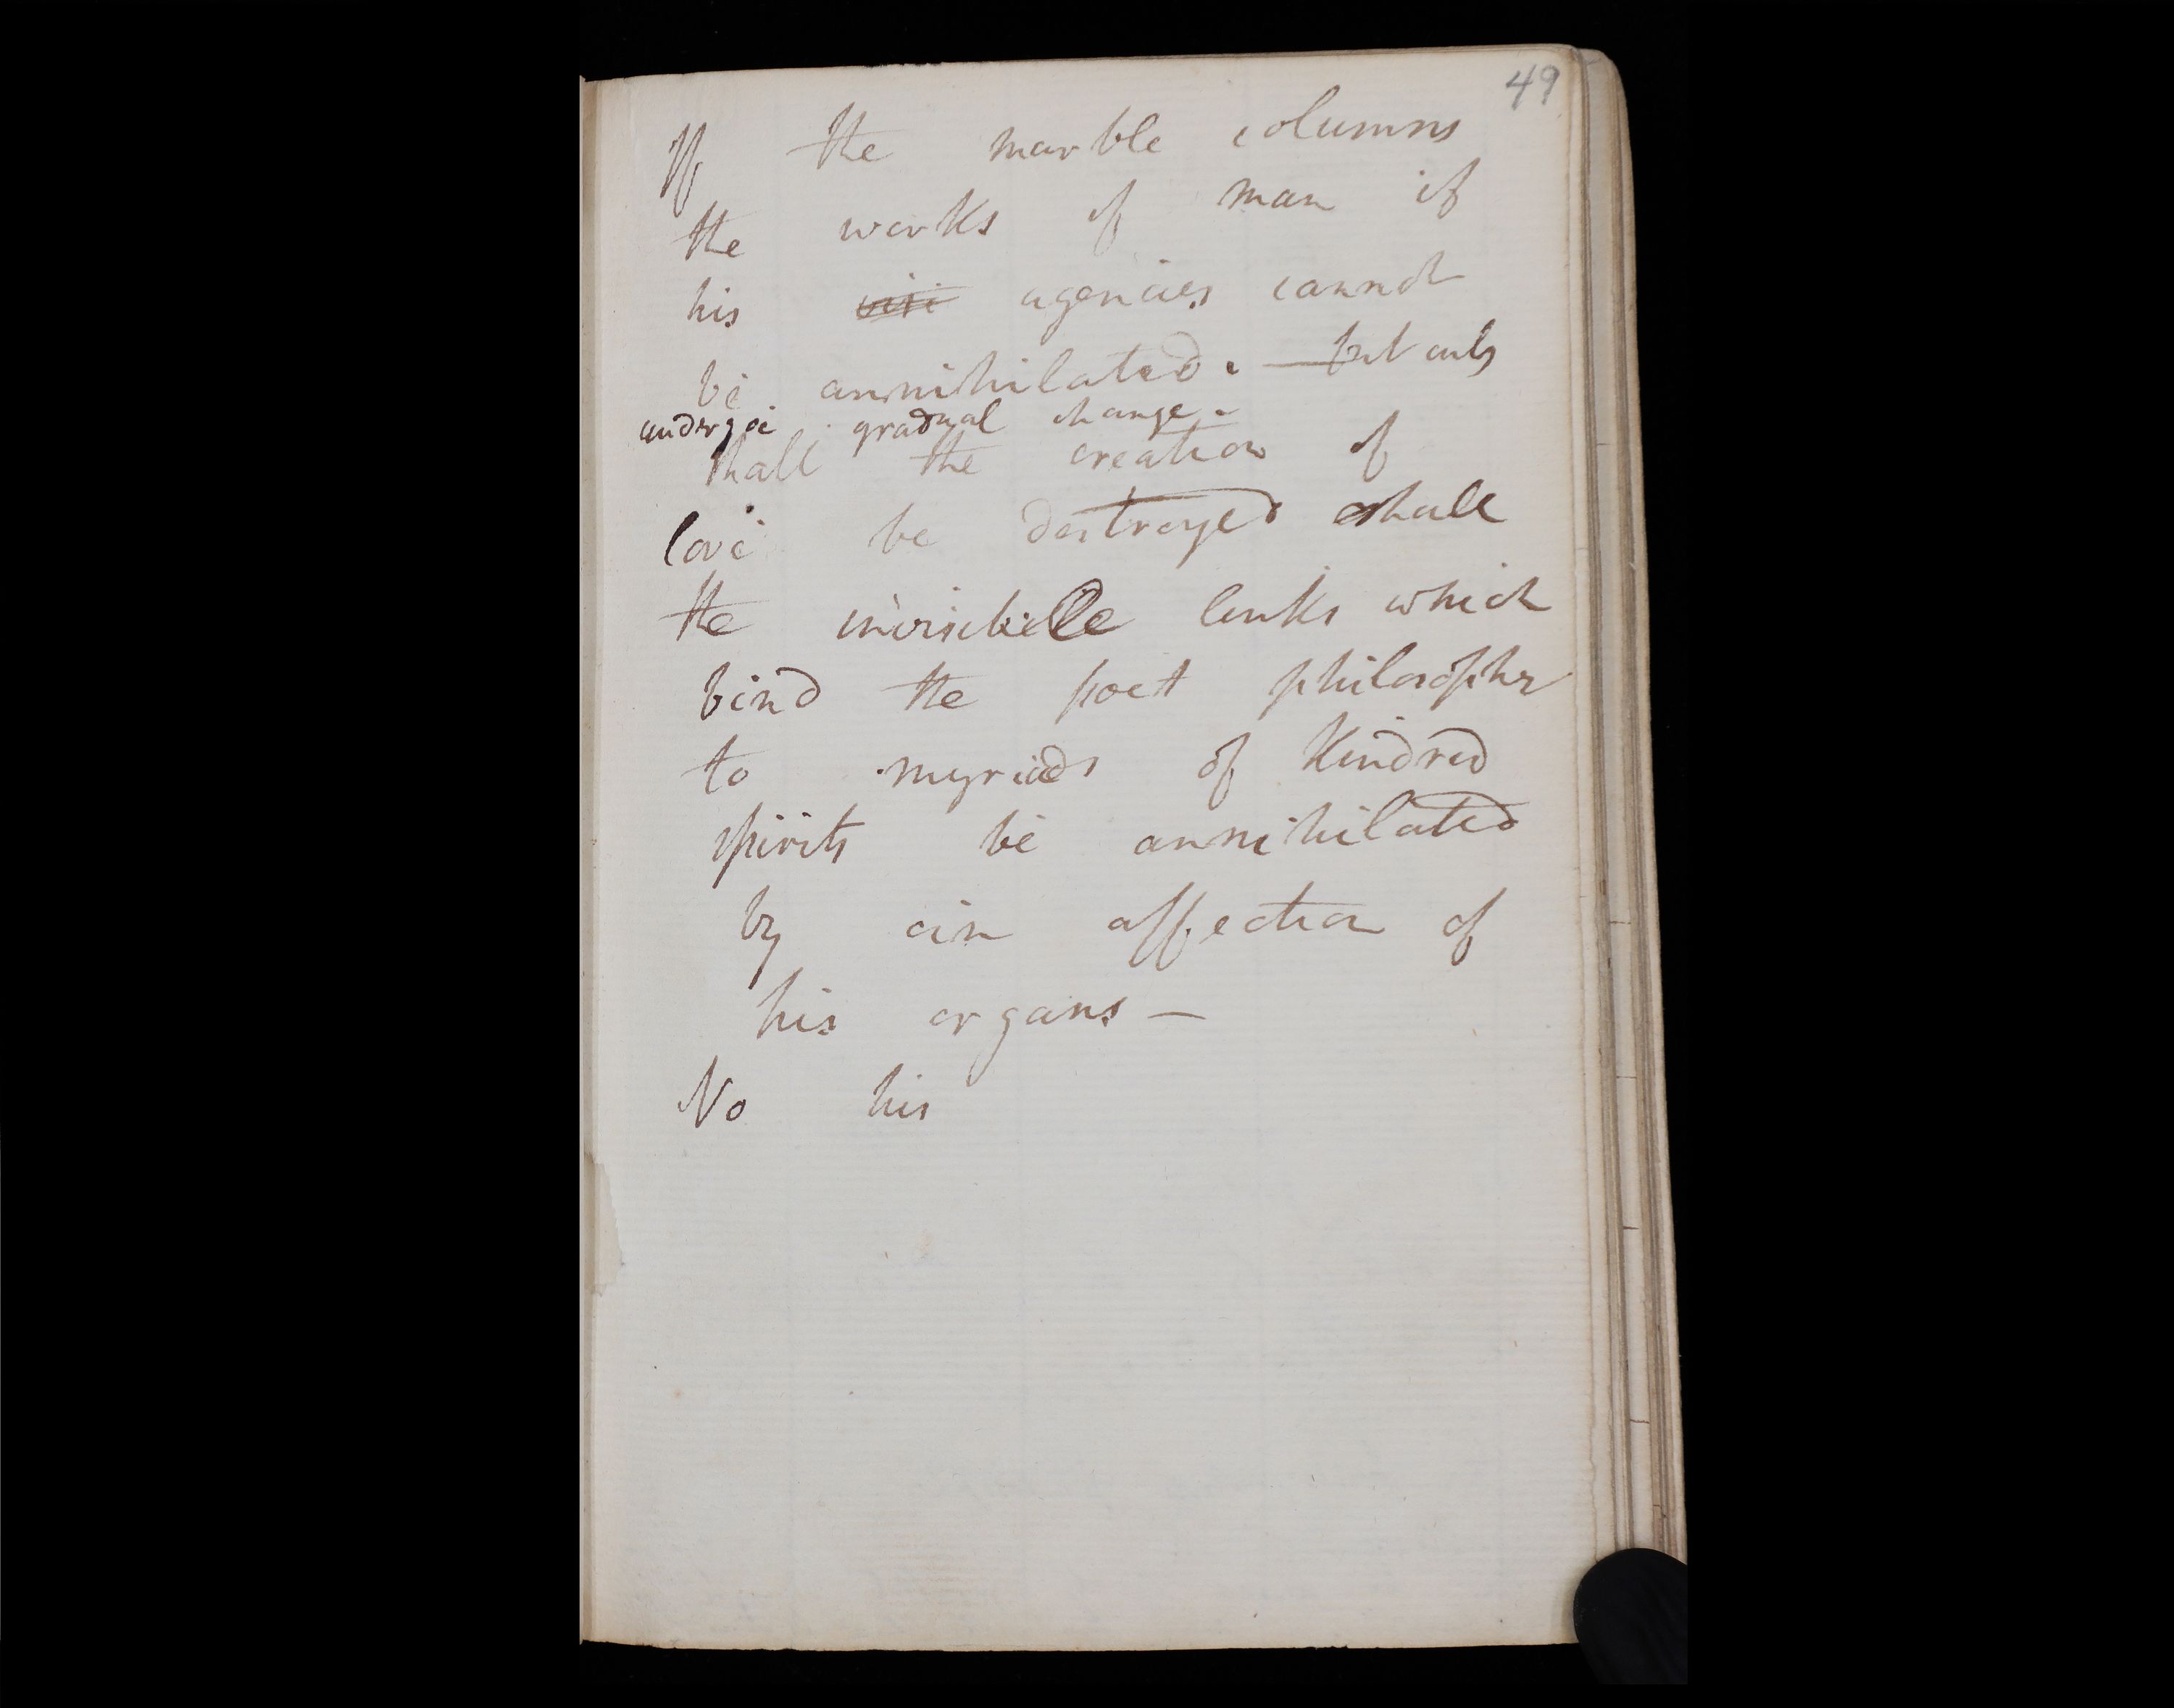 49
If the marble columns
the works of man if
his visi agencies cannot
be annihilated. — but only
undergoe gradual change -
shall the creation of
love be destroyed shall
the invisibille links which
bind the poet philosopher
to myriads of Kindred
spirits be annihilated
by an affection of
his organs —
No his